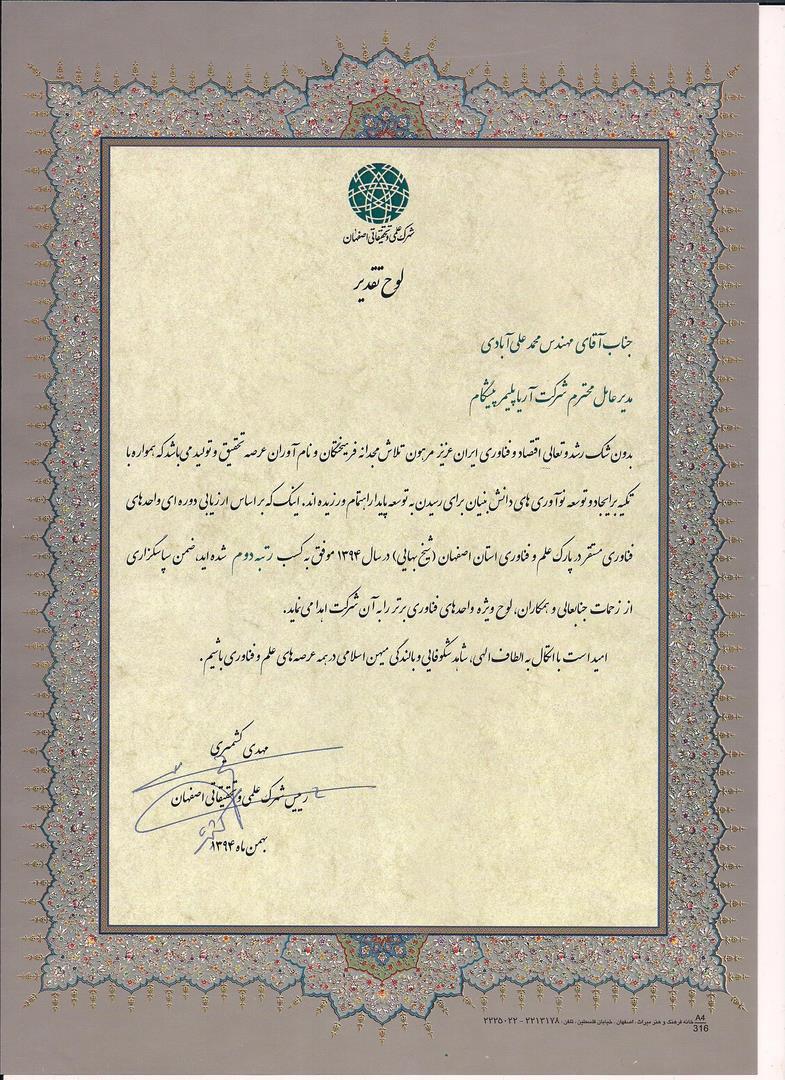 شهرک علمی و تحقیقاتی اصفهان
لوح تقدیر
جناب آقای مهندس محمد علی آبادی
مدیرعامل محترم شرکت آریا پلیمر پیشگام
بدون شک رشد و تعالی اقتصاد و فناوری ایران عزیز مرهون تلاش مجدانه فرهیختگان و نام آوران عرصه تحقیق و تولید می باشد که همواره با
تکیه بر ایجاد و توسعه نوآوری های دانش بنیان برای رسیدن به توسعه پایدار اهتمام ورزیده اند. اینک که بر اساس ارزیابی دوره ای واحدهای
فناوری مستقر در پارک علم و فناوری استان اصفهان (شیخ بهایی) در سال ۱۳۹۴ موفق به کسب رتبه دوم شده اید، ضمن سپاسگزاری
از زحمات جنابعالی و همکاران، لوح ویژه واحدهای فناوری برتر را به آن شرکت اهدا می نماید.
امید است با اتکال به الطاف الهی، شاهد شکوفایی و بالندگی میهن اسلامی در همه عرصه های علم و فناوری باشیم.
مهدی کشمیری
رییس شهرک علمی و تحقیقاتی اصفهان
بهمن ماه ۱۳۹۴
خانه فرهنگ و هنر میراث . اصفهان . خیابان فلسطین . تلفن : ۲۲۱۳۱۷۸ - ۲۲۲۵۰۲۲
A4
316